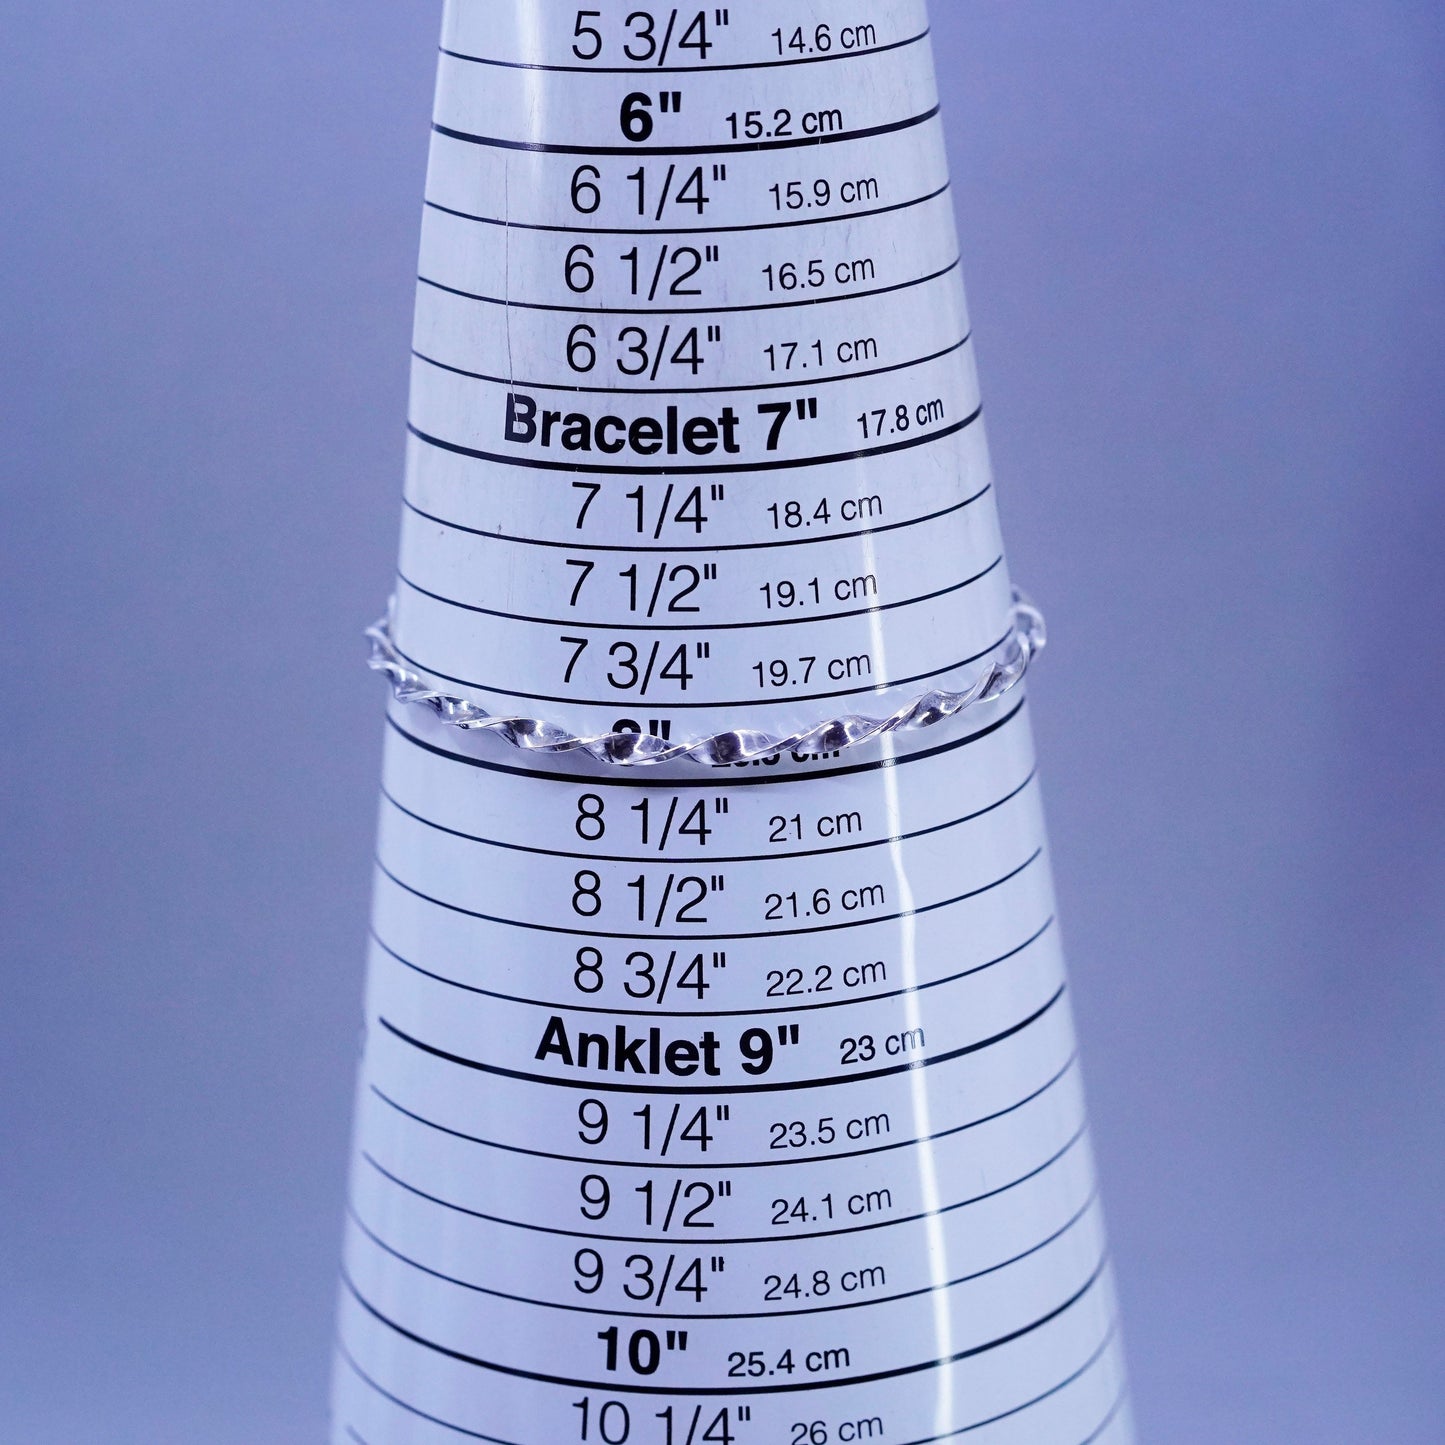 5 3/4" 14.6 cm
6" 15.2 cm
6 1/4" 15.9 cm
6 1/2" 16.5 cm
6 3/4" 17.1 cm
Bracelet 7" 17.8 cm
7 1/4" 18.4 cm
7 1/2" 19.1 cm
7 3/4" 19.7 cm
8" cm
8 1/4" 21 cm
8 1/2" 21.6 cm
8 3/4" 22.2 cm
Anklet 9" 23 cm
9 1/4" 23.5 cm
9 1/2" 24.1 cm
9 3/4" 24.8 cm
10" 25.4 cm
10 1/4" 26 cm